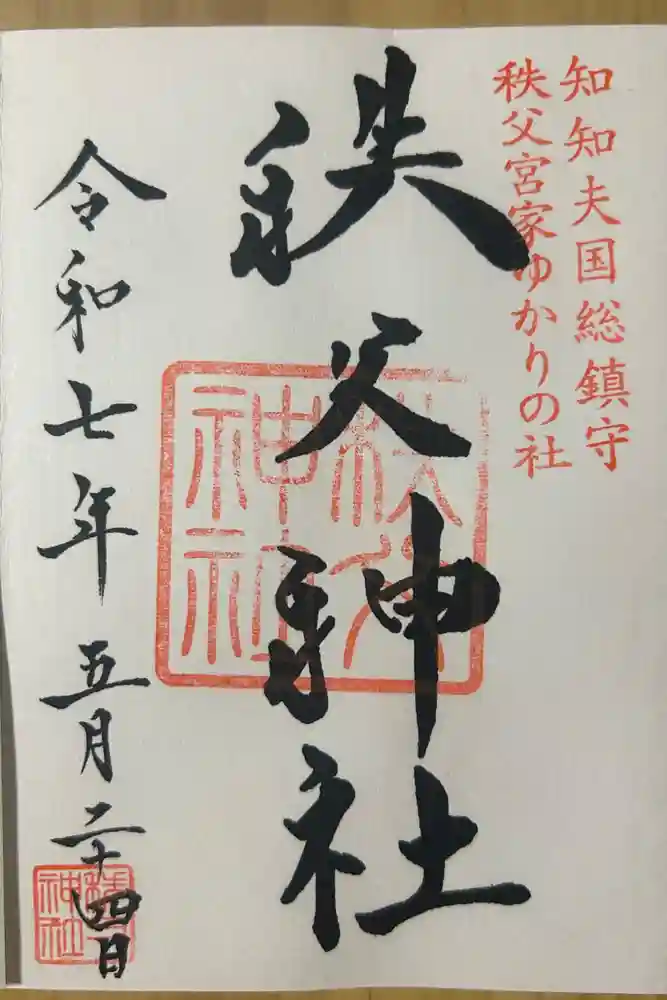 知知夫国総鎮守
秩父宮家ゆかりの社
秩父神社
令和七年五月二十四日
秩父神社